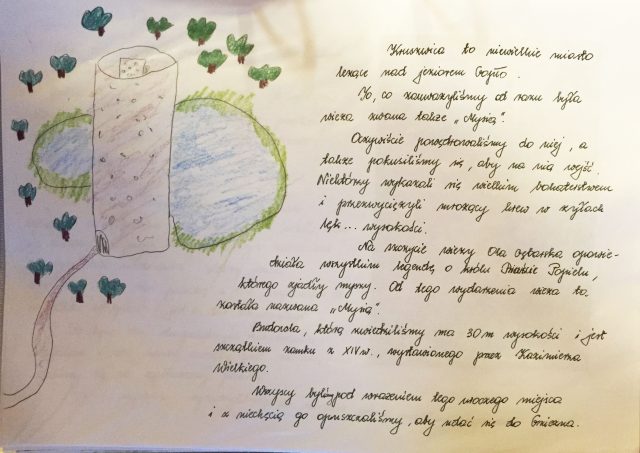 Kruszwica to niewielkie miasto
leżące nad jeziorem Gopło.
To, co zauważyliśmy od razu była
wieża zwana także „Mysią".
Oczywiście powędrowaliśmy do niej, a
także pokusiliśmy się, aby na nią wejść.
Niektórzy wykazali się wielkim bohaterstwem
i przezwyciężyli mrożący krew w żyłach
lęk... wysokości.
Na szczycie wieży Ola opowie-
działa wszystkim legendę o królu Popielu,
którego zjadły myszy. Od tego wydarzenia wieża ta,
została nazwana „Mysią".
Budowla, którą zwiedziliśmy ma 30 m wysokości i jest
szczątkiem zamku z XIV w., wystawionego przez Kazimierza
Wielkiego.
Wszyscy byliśmy pod wrażeniem tego uroczego miejsca
i z niechęcią go opuszczaliśmy, aby udać się do Gniezna.